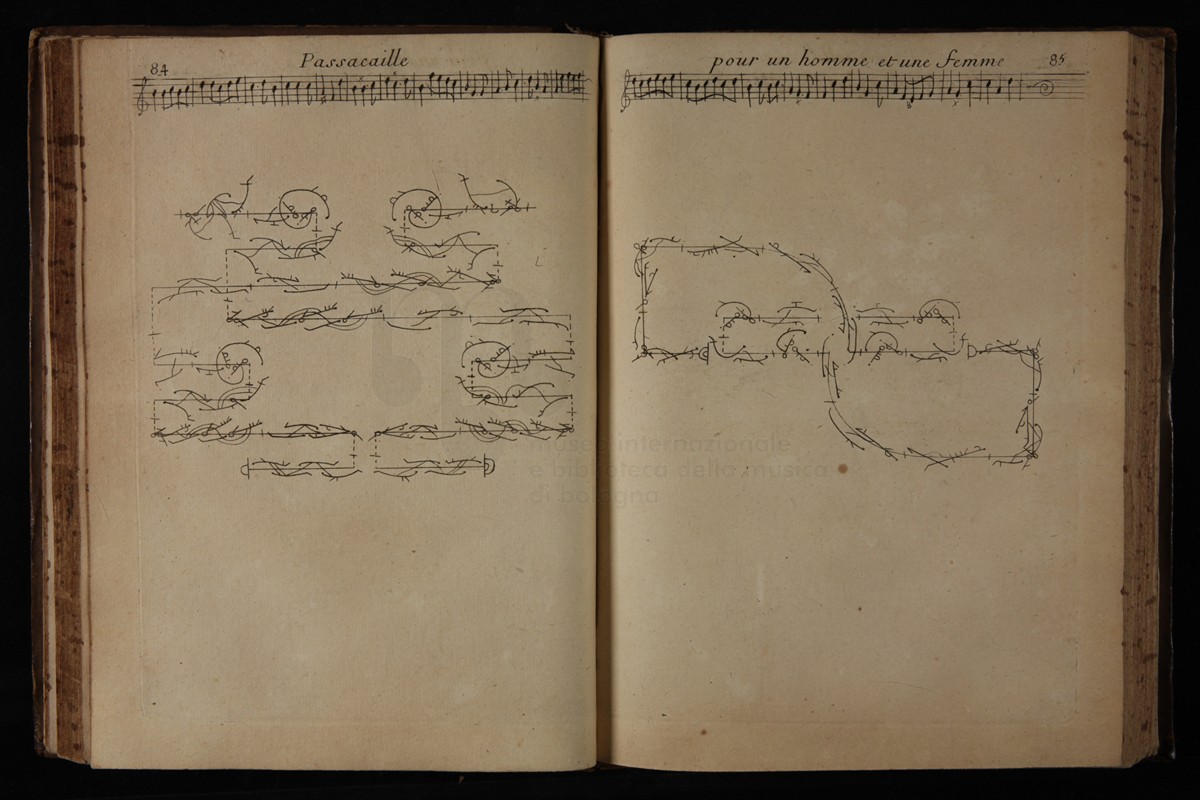 84
Passacaille
pour un homme et une femme
85
museo internazionale
e biblioteca della musica
di bologna